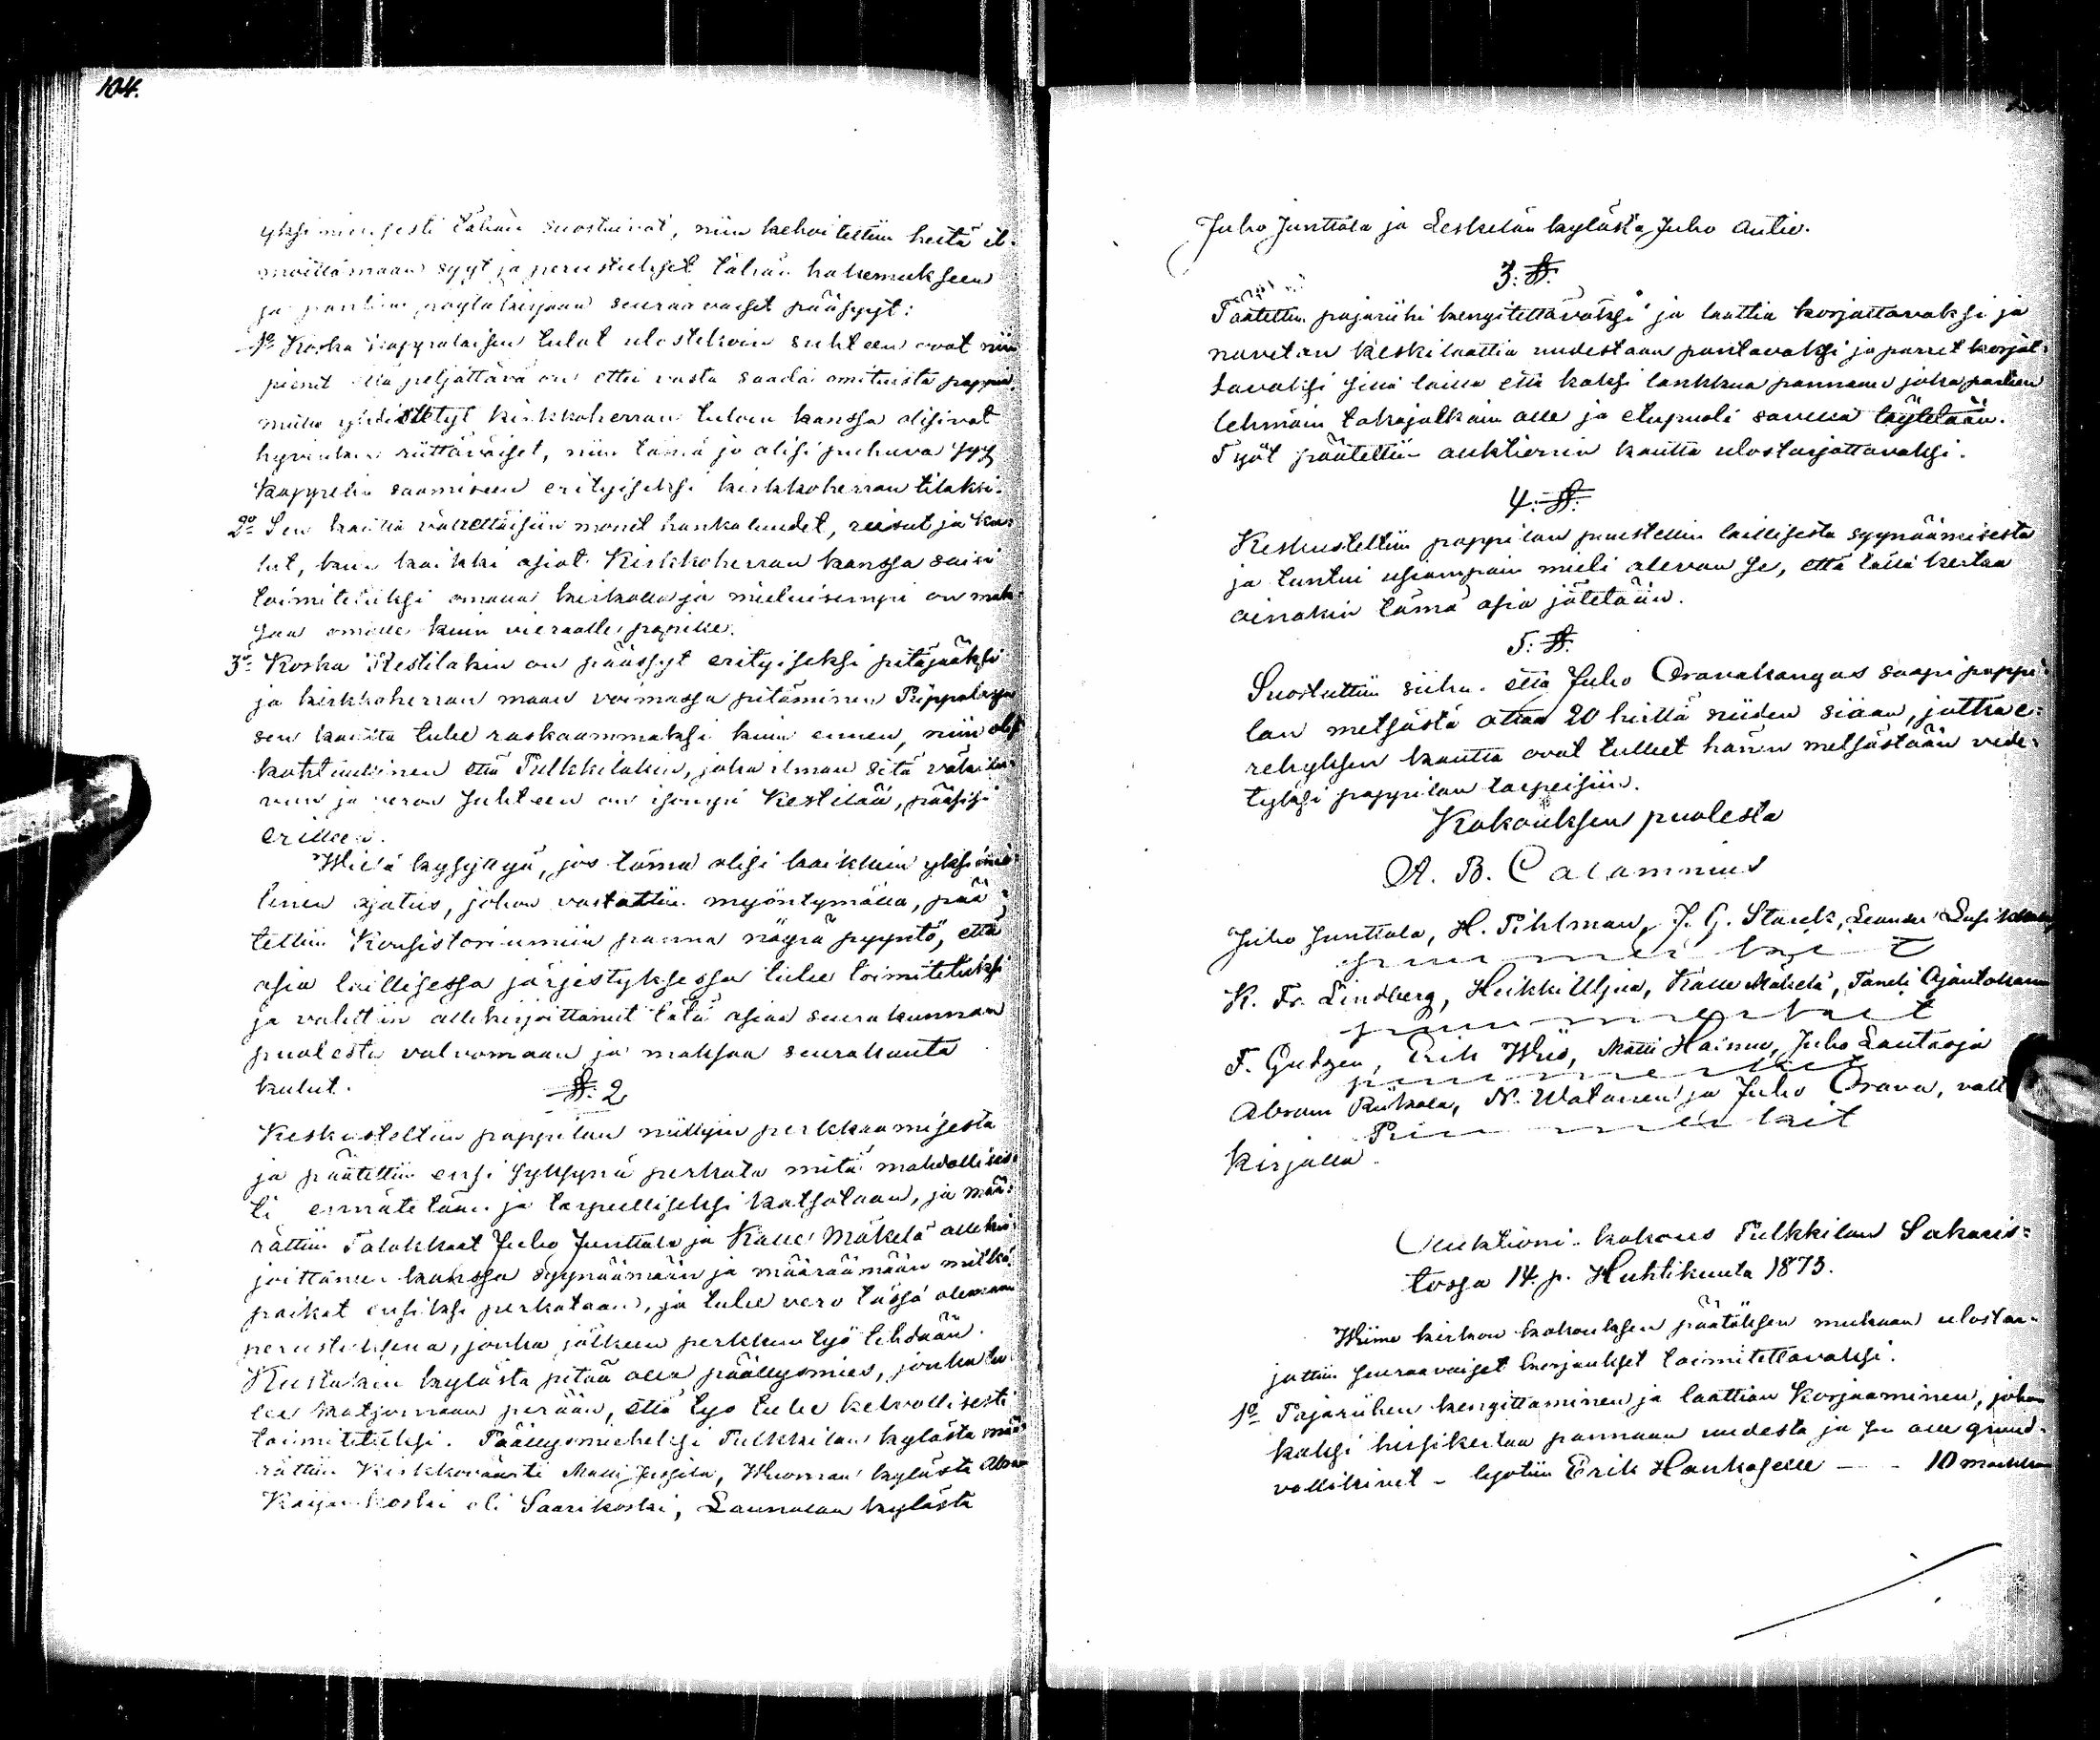 104.
yksimielisesti tähän suostuivat, niin kehoitettiin heitä il-
moittamaan syyt ja perustukset tähän hakemukseen
ja pantiin pöytäkirjaan seuraavaiset pääsyyt:
1:o Koska kappalaisen tulot ulostekoin suhteen ovat niin
pienet että peljättävä on ettei vasta saada omituista pappia,
mutta yhdistetyt kirkkoherran tuloin kanssa olisivat
hyvinkin riittäväiset, niin tämä jo olisi puhuva syy
Kappelin saamiseen erityiseksi kirkkoherran tilaksi.
2:o Sen kautta vältettäisiin monet hankaluudet, reisut ja ku-
lut, kuin kaikki asiat Kirkkoherran kanssa saisi
toimitetuksi omalla kirkolla ja mieluisempi on mak-
saa omille kuin vieraalle papille.
3:o Koska Kestiläkin on päässyt erityiseksi pitäjääksi
ja kirkkoherran maan voimassa pitäminen Piippolassa
sen kautta tulee raskaammaksi kuin ennen, niin olisi
kohtuullinen että Pulkkilakin, joka ilman sitä väki lu-
vun ja veron suhteen on isompi Kestilää, pääsisi
erilleen.
Wielä kysyttyä, jos tämä olisi kaikkein yksimie-
linen ajatus, johon vastattiin myöntymällä, pää-
tettiin Konsistoriumiin panna nöyrä pyyntö, että
asia laillisessa järjestyksessä tulee toimitetuksi
ja valittiin allekirjoittanut tätä asiaa seurakunnan
puolesta valvomaan ja maksaa seurakunta
kulut.
§. 2
Keskusteltiin pappilan niittyin perkkaamisesta
ja päätettiin ensi syksynä perkata mitä mahdollises-
ti ennätetään ja tarpeelliseksi katsotaan, ja mää-
rättiin Talokkaat Juho Junttola ja Kalle Mäkelä allekir-
joittaneen kanssa syynäämään ja määräämään mitkä
paikat ensiksi perkataan, ja tulee vero tässä olemaan
perustuksena, jonka jälkeen perkkuu työ tehdään.
Kustakin kylästä pitää olla päällysmies, jonka tu-
lee katsomaan perään, että työ tulee kelvollisesti
toimitetuksi. Päällysmieheksi Pulkkilan kylästä mää-
rättiin Kirkkoväärti Matti Jussila, Wuoman kylästä Abram
Kaijankoski eli Saarikoski, Laurilan kylästä
Juho Junttola ja Leskelän kylästä Juho Antie.
3. §.
Päätettiin pajariihi kengitettäväksi ja laattia korjattavaksi ja
navetan keskilaattia uudestaan pantavaksi ja parret korjat-
tavaksi sillä lailla että kaksi lankkua pannaan joka parteen
lehmäin takajalkain alle ja etupuoli savella täytetään.
Työt päätettiin auktionin kautta ulostarjottavaksi.
4. §.
Keskusteltiin pappilan puustellin laillisesta syynäämisestä
ja tuntui usiampain mieli olevan se, että tällä kertaa
ainakin tämä asia jätetään.
5. §.
Suostuttiin siihen että Juho Oravakangas saapi pappi-
lan metsästä ottaa 20 hirttä niiden siaan, jotka e-
rehyksen kautta ovat tulleet hänen metsästään vede-
tyksi pappilan tarpeisiin.
Kokouksen puolesta
A. B. Calamnius
Juho Junttola, H. Pihlman, J. G. Starck, Leander
puumerkit
K. Fr. Lindberg, Heikki Uljua, Kalle Mäkelä, Taneli
puumerkit
F. Erik Wiio, Matti Hainua, Juho Lautaoja
puumerkit
Abram N. Watanen ja Juho Orava, valt
Puumerkit
kirjalla.
Auktioni-kokous Pulkkilan Sakaris-
tossa 14. p. Huhtikuuta 1873.
Wiime kirkon kokouksen päätöksen mukaan ulostar-
jottiin seuraavaiset korjaukset toimitettavaksi.
1:o Pajariihen kengittäminen ja laattian korjaaminen, johon
kaksi hirsikertaa pannaan uudesta ja sen alle grund-
vallikivet - lyötiin Erik Honkaselle - - 10 markkaan